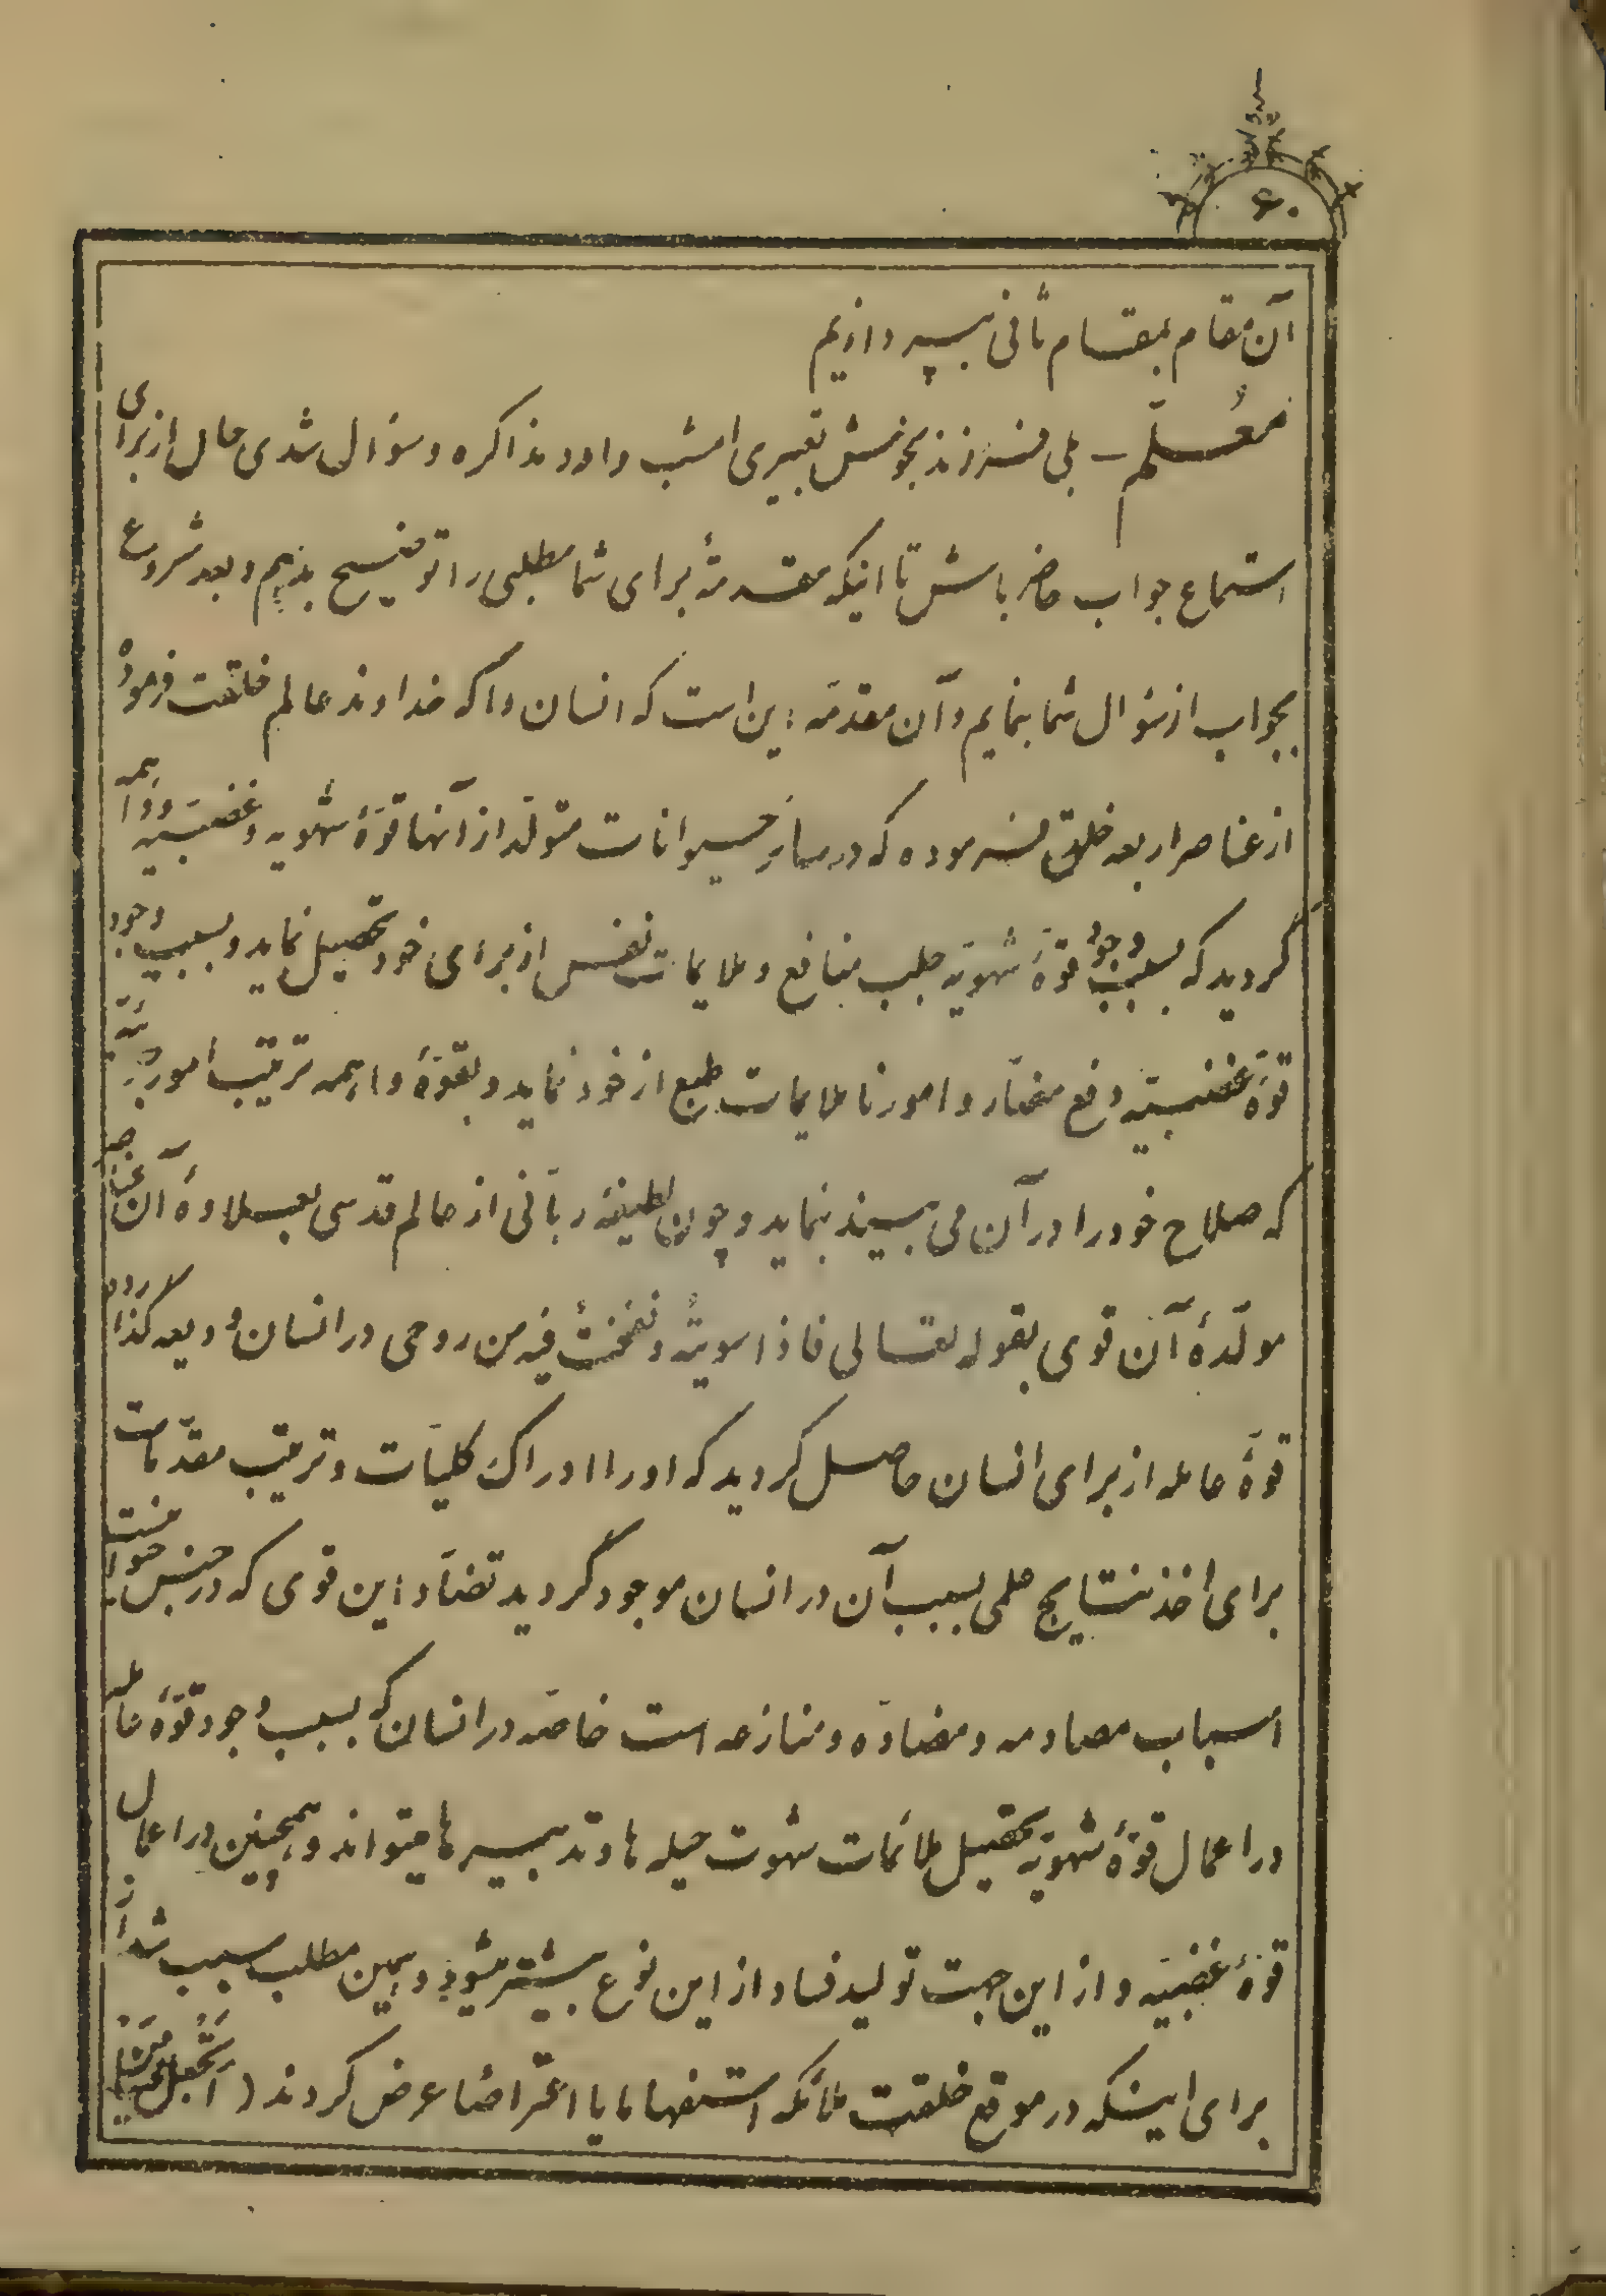 ۶۰
آن مقام بمقام ثانی بپردازیم
معلّم – بلی فرزند بخوش تعبیری امشب وارد مذاکره و سؤال شدی حال از برای
استماع جواب حاضر باش تا اینکه مقدمةً برای شما مطلبی را توضیح بدهم و بعد شروع
بجواب از سؤال شما بنمایم و آن مقدمه این است که انسان را که خداوند عالم خلقت فرموده
از عناصر اربعه خلق فرموده که در سایر حیوانات متولّد از آنها قوّهٔ شهویه و غضبیه و واهمه
گردید که بسبب وجود قوّهٔ شهویّه جلب منافع و ملایمات نفس از برای خود تحصیل نماید و بسبب وجود
قوّهٔ غضبیّه دفع مضارّ و امور ناملایمات طبع از خود نماید و بقوّهٔ واهمه ترتیب أمور جزئیّه
که صلاح خود را در آن می بیند بنماید و چون لطیفهٔ ربّانی از عالم قدسی بعلاوهٔ آن عناصر
مولّدهٔ آن قوی بقوله تعالی فاذا سویتُه و نفختُ فیه من روحی در انسان ودیعه گذارد
قوّهٔ عامله از برای انسان حاصل گردید که او را ادراک کلیّات و ترتیب مقدّمات
برای أخذ نتایج علمی بسبب آن در انسان موجود گردید تضادّ این قوی که در جنس حیوانست
اسباب مصادمه و مضادّه و منازعه است خاصّه در انسان که بسبب وجود قوّهٔ عامله
در اعمال قوّهٔ شهویّه تحصیل ملائمات شهوت حیله ها و تدبیرها میتواند و همچنین در اعمال
قوّهٔ غضبیّه و از این جهت تولید فساد از این نوع بیشتر میشود و همین مطلب سبب شد از
برای اینکه در موقع خلقت ملائکه استفهاما یا اعتراضا عرض کردند ( أتَجعل فیها مَن